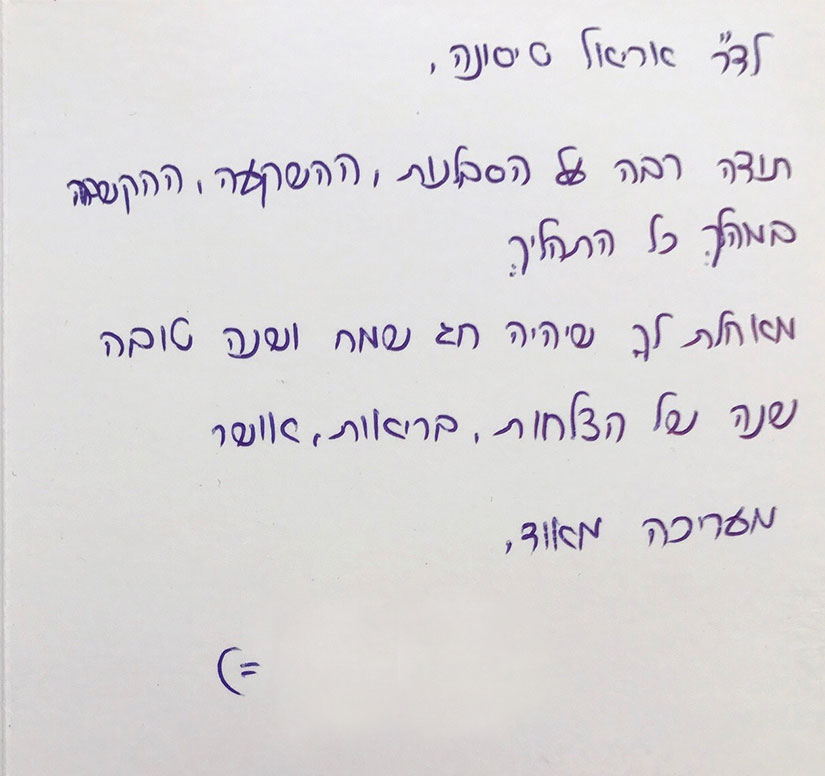 לד"ר אוריאל סיסונה,
תודה רבה על הסבלנות, ההשקעה, ההקשבה
במהלך כל התהליך
מאחלת לך שיהיה חג שמח ושנה טובה
שנה של הצלחות, בריאות, אושר
מעריכה מאוד,
(=